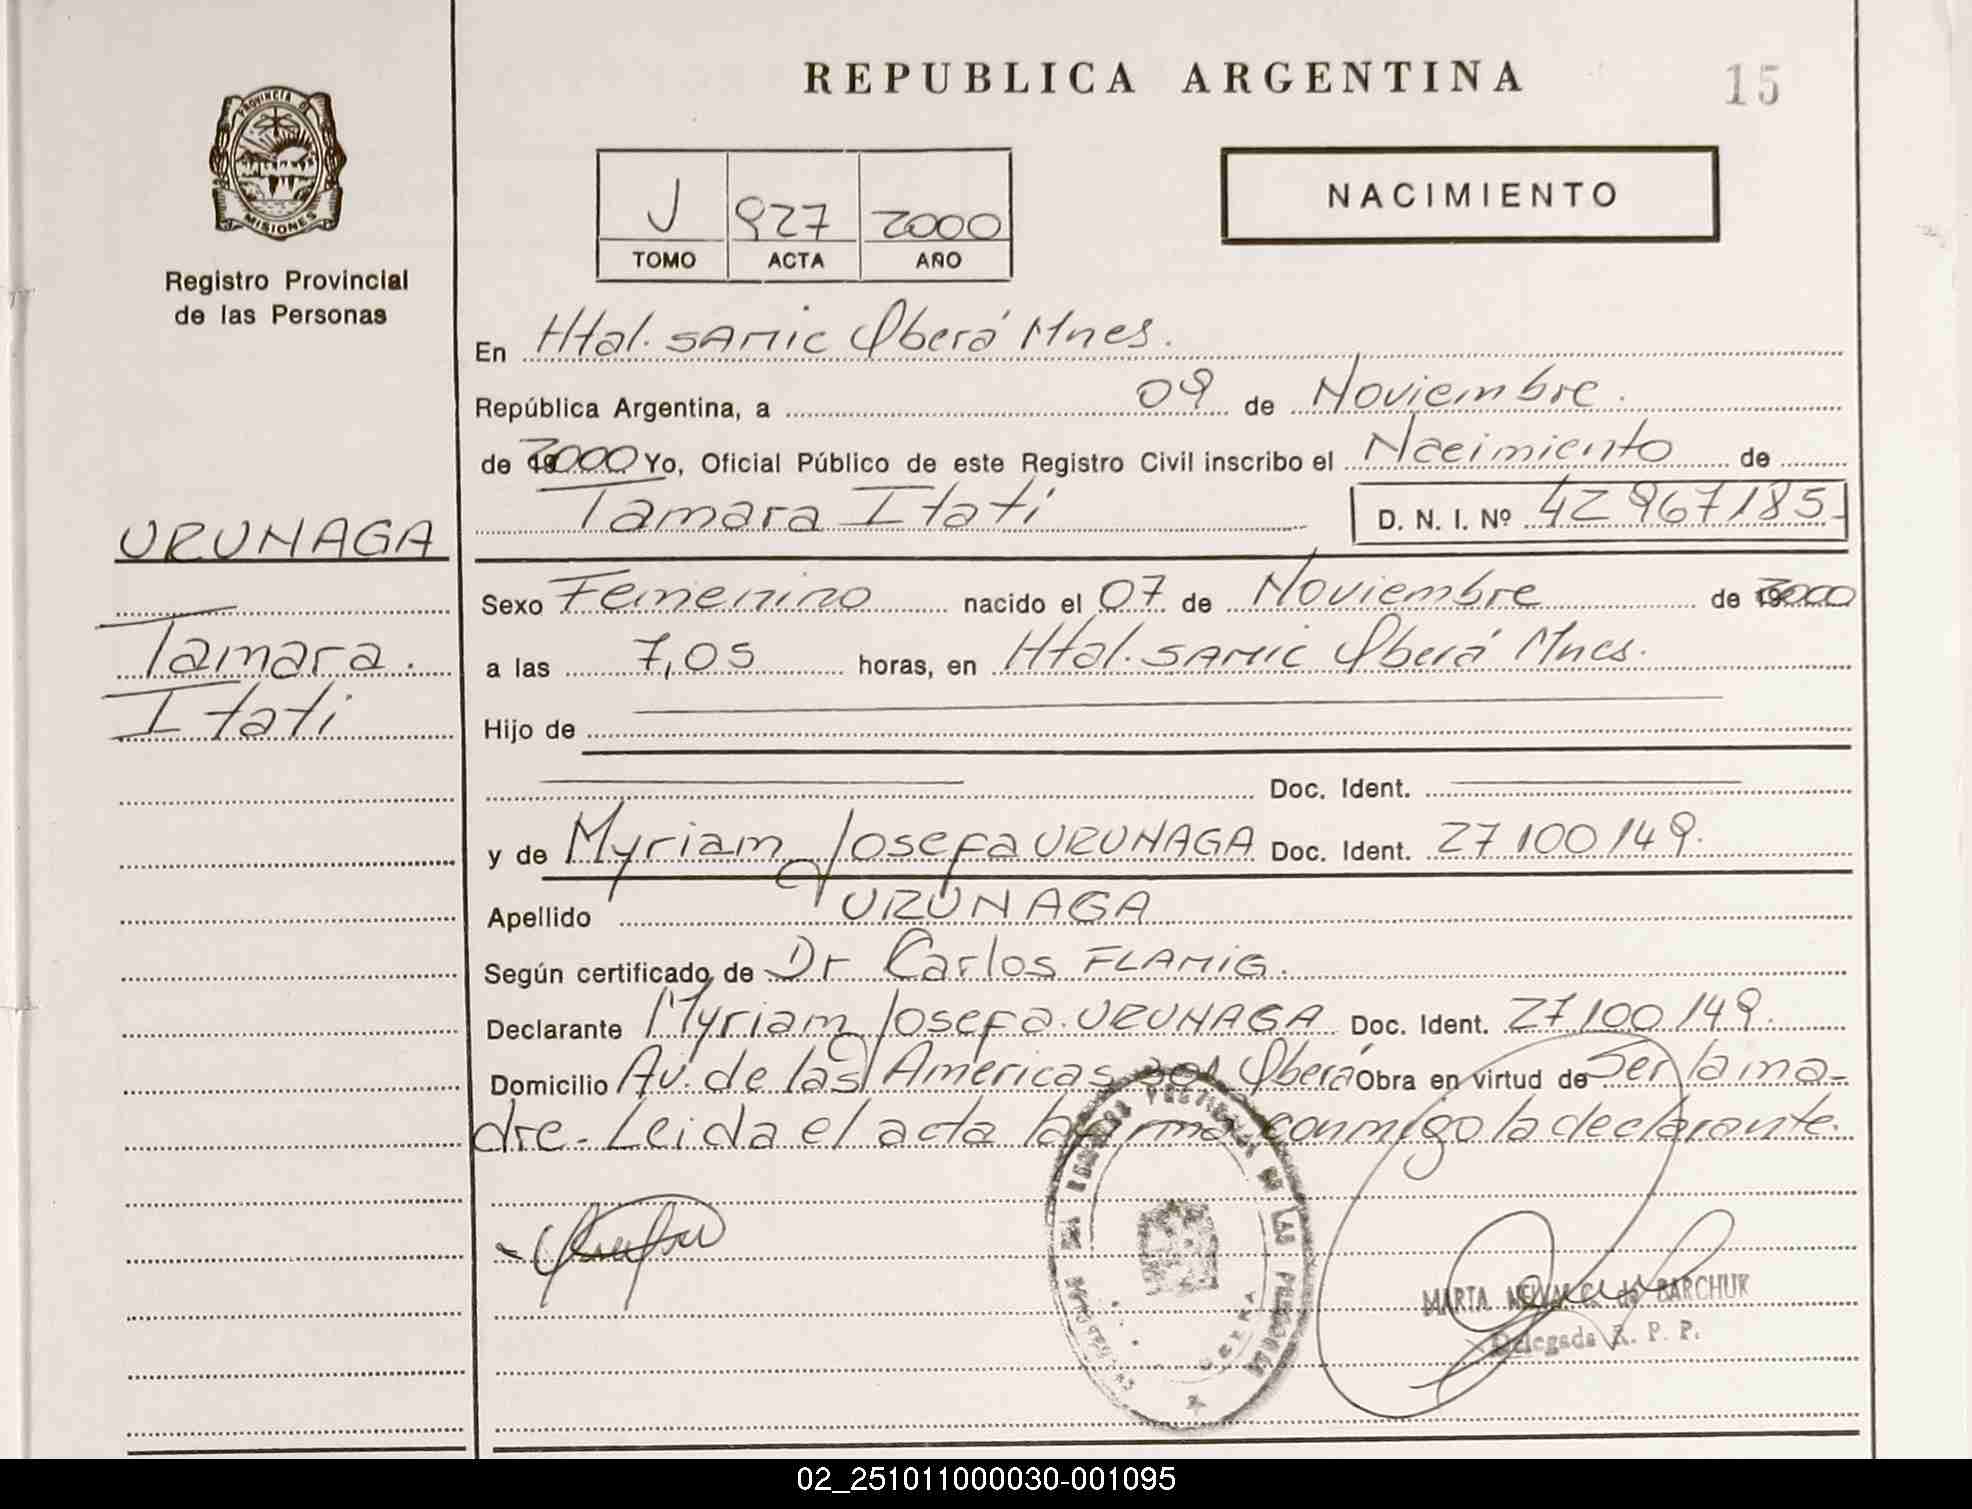 REPUBLICA ARGENTINA
15
PROVINCIA D
MISIONES
Registro Provincial
de las Personas
J 927 2000
TOMO ACTA AÑO
NACIMIENTO
En Htal. SAMIC Oberá Mnes.
República Argentina, a 09 de Noviembre.
de 2000 Yo, Oficial Público de este Registro Civil inscribo el Nacimiento de
Tamara Itati D. N. I. Nº 42 967185-
URUNAGA
Tamara.
Itati
Sexo Femenino nacido el 07 de Noviembre de 2000
a las 7,05 horas, en Htal. SAMIC Oberá Mnes.
Hijo de
Doc. Ident.
y de Myriam Josefa URUNAGA Doc. Ident. 27 100 149.
Apellido URUNAGA
Según certificado de Dr Carlos FLAMIG.
Declarante Myriam Josefa URUNAGA Doc. Ident. 27 100 149.
Domicilio Av. de las Americas 301 Oberá Obra en virtud de Ser la ma-
dre.- Leida el acta la firma conmigo la declarante.
DE LAS PERSONAS
MARTA C. de BARCHUK
Delegada R. P. P.
02_251011000030-001095